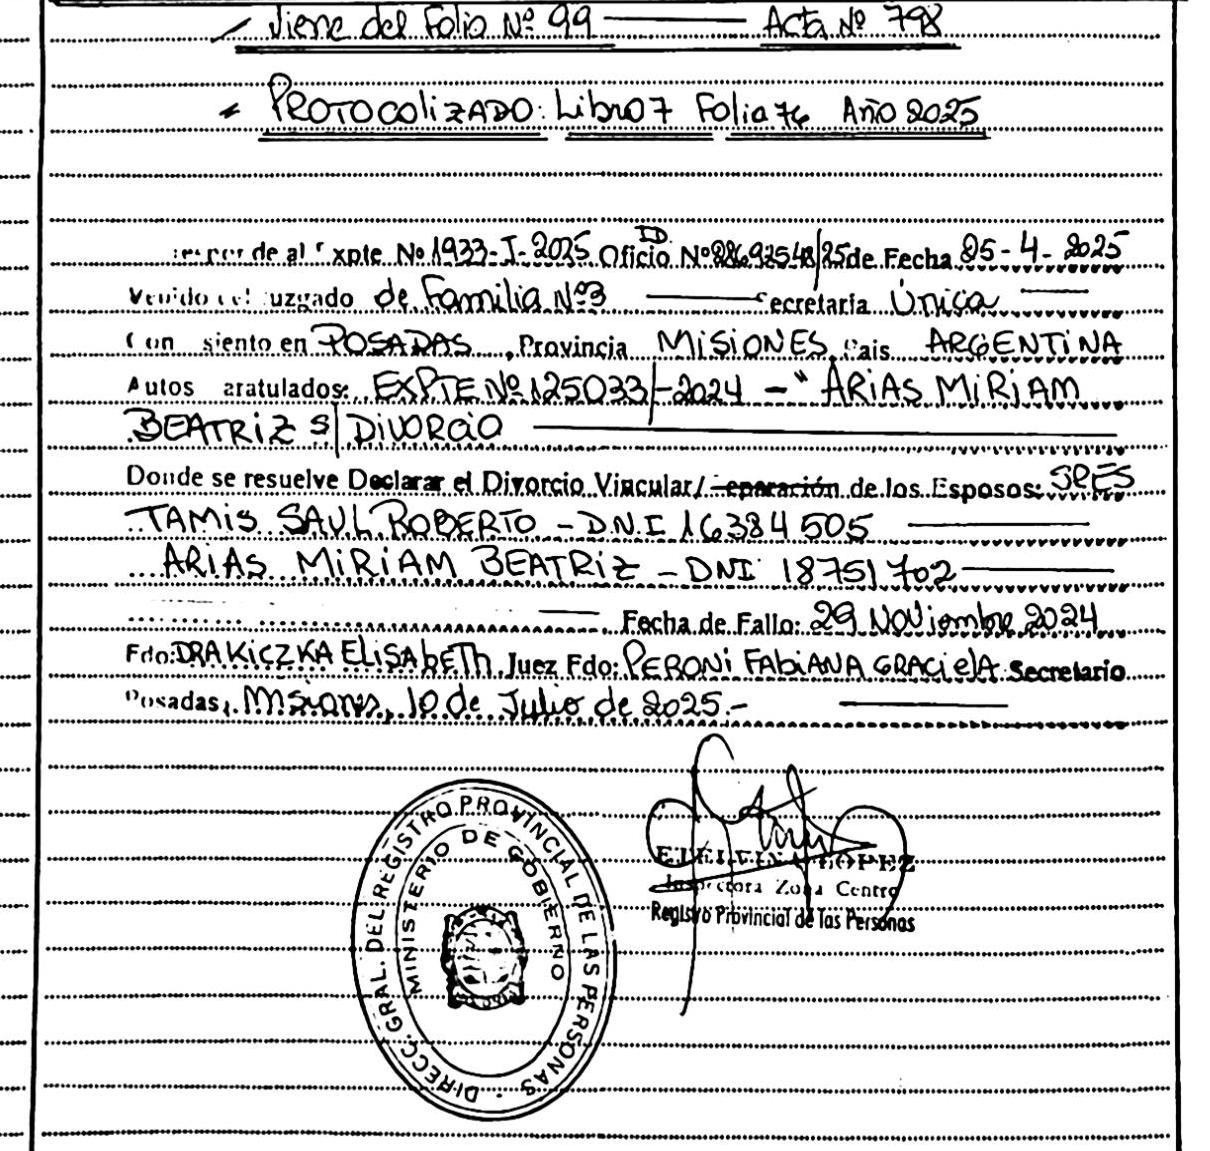 Viene del Folio Nº 99 — Acta Nº 798
PROTOCOLIZADO: Libro 7 Folio 76 Año 2025
de al Expte No 1933-I-2025 Oficio ID Nº /25 de Fecha 25-4-2025
Venido del Juzgado de Familia Nº3 — Secretaria Única —
Con siento en POSADAS, Provincia MISIONES, Pais ARGENTINA
Autos aratulados: EXPTE Nº 125033/-2024 - "ARIAS MIRIAM
BEATRIZ S/ DIVORCIO —
Donde se resuelve Declarar el Divorcio Vincular/ eparación de los Esposos: SRES
TAMIS SAUL ROBERTO - D.N.I 16384505 —
ARIAS MIRIAM BEATRIZ - DNI 18751702 —
— Fecha de Fallo: 29 NOViembre 2024
Fdo: DRA KICZKA ELISABETH Juez Fdo: PERONI FABIANA GRACIELA Secretario
Posadas, Misiones, 10 de Julio de 2025.- —
LOPEZ
Inspectora Zona Centro
Registro Provincial de las Personas
DIRECC. GRAL. DEL REGISTRO PROVINCIAL DE LAS PERSONAS
MINISTERIO DE GOBIERNO